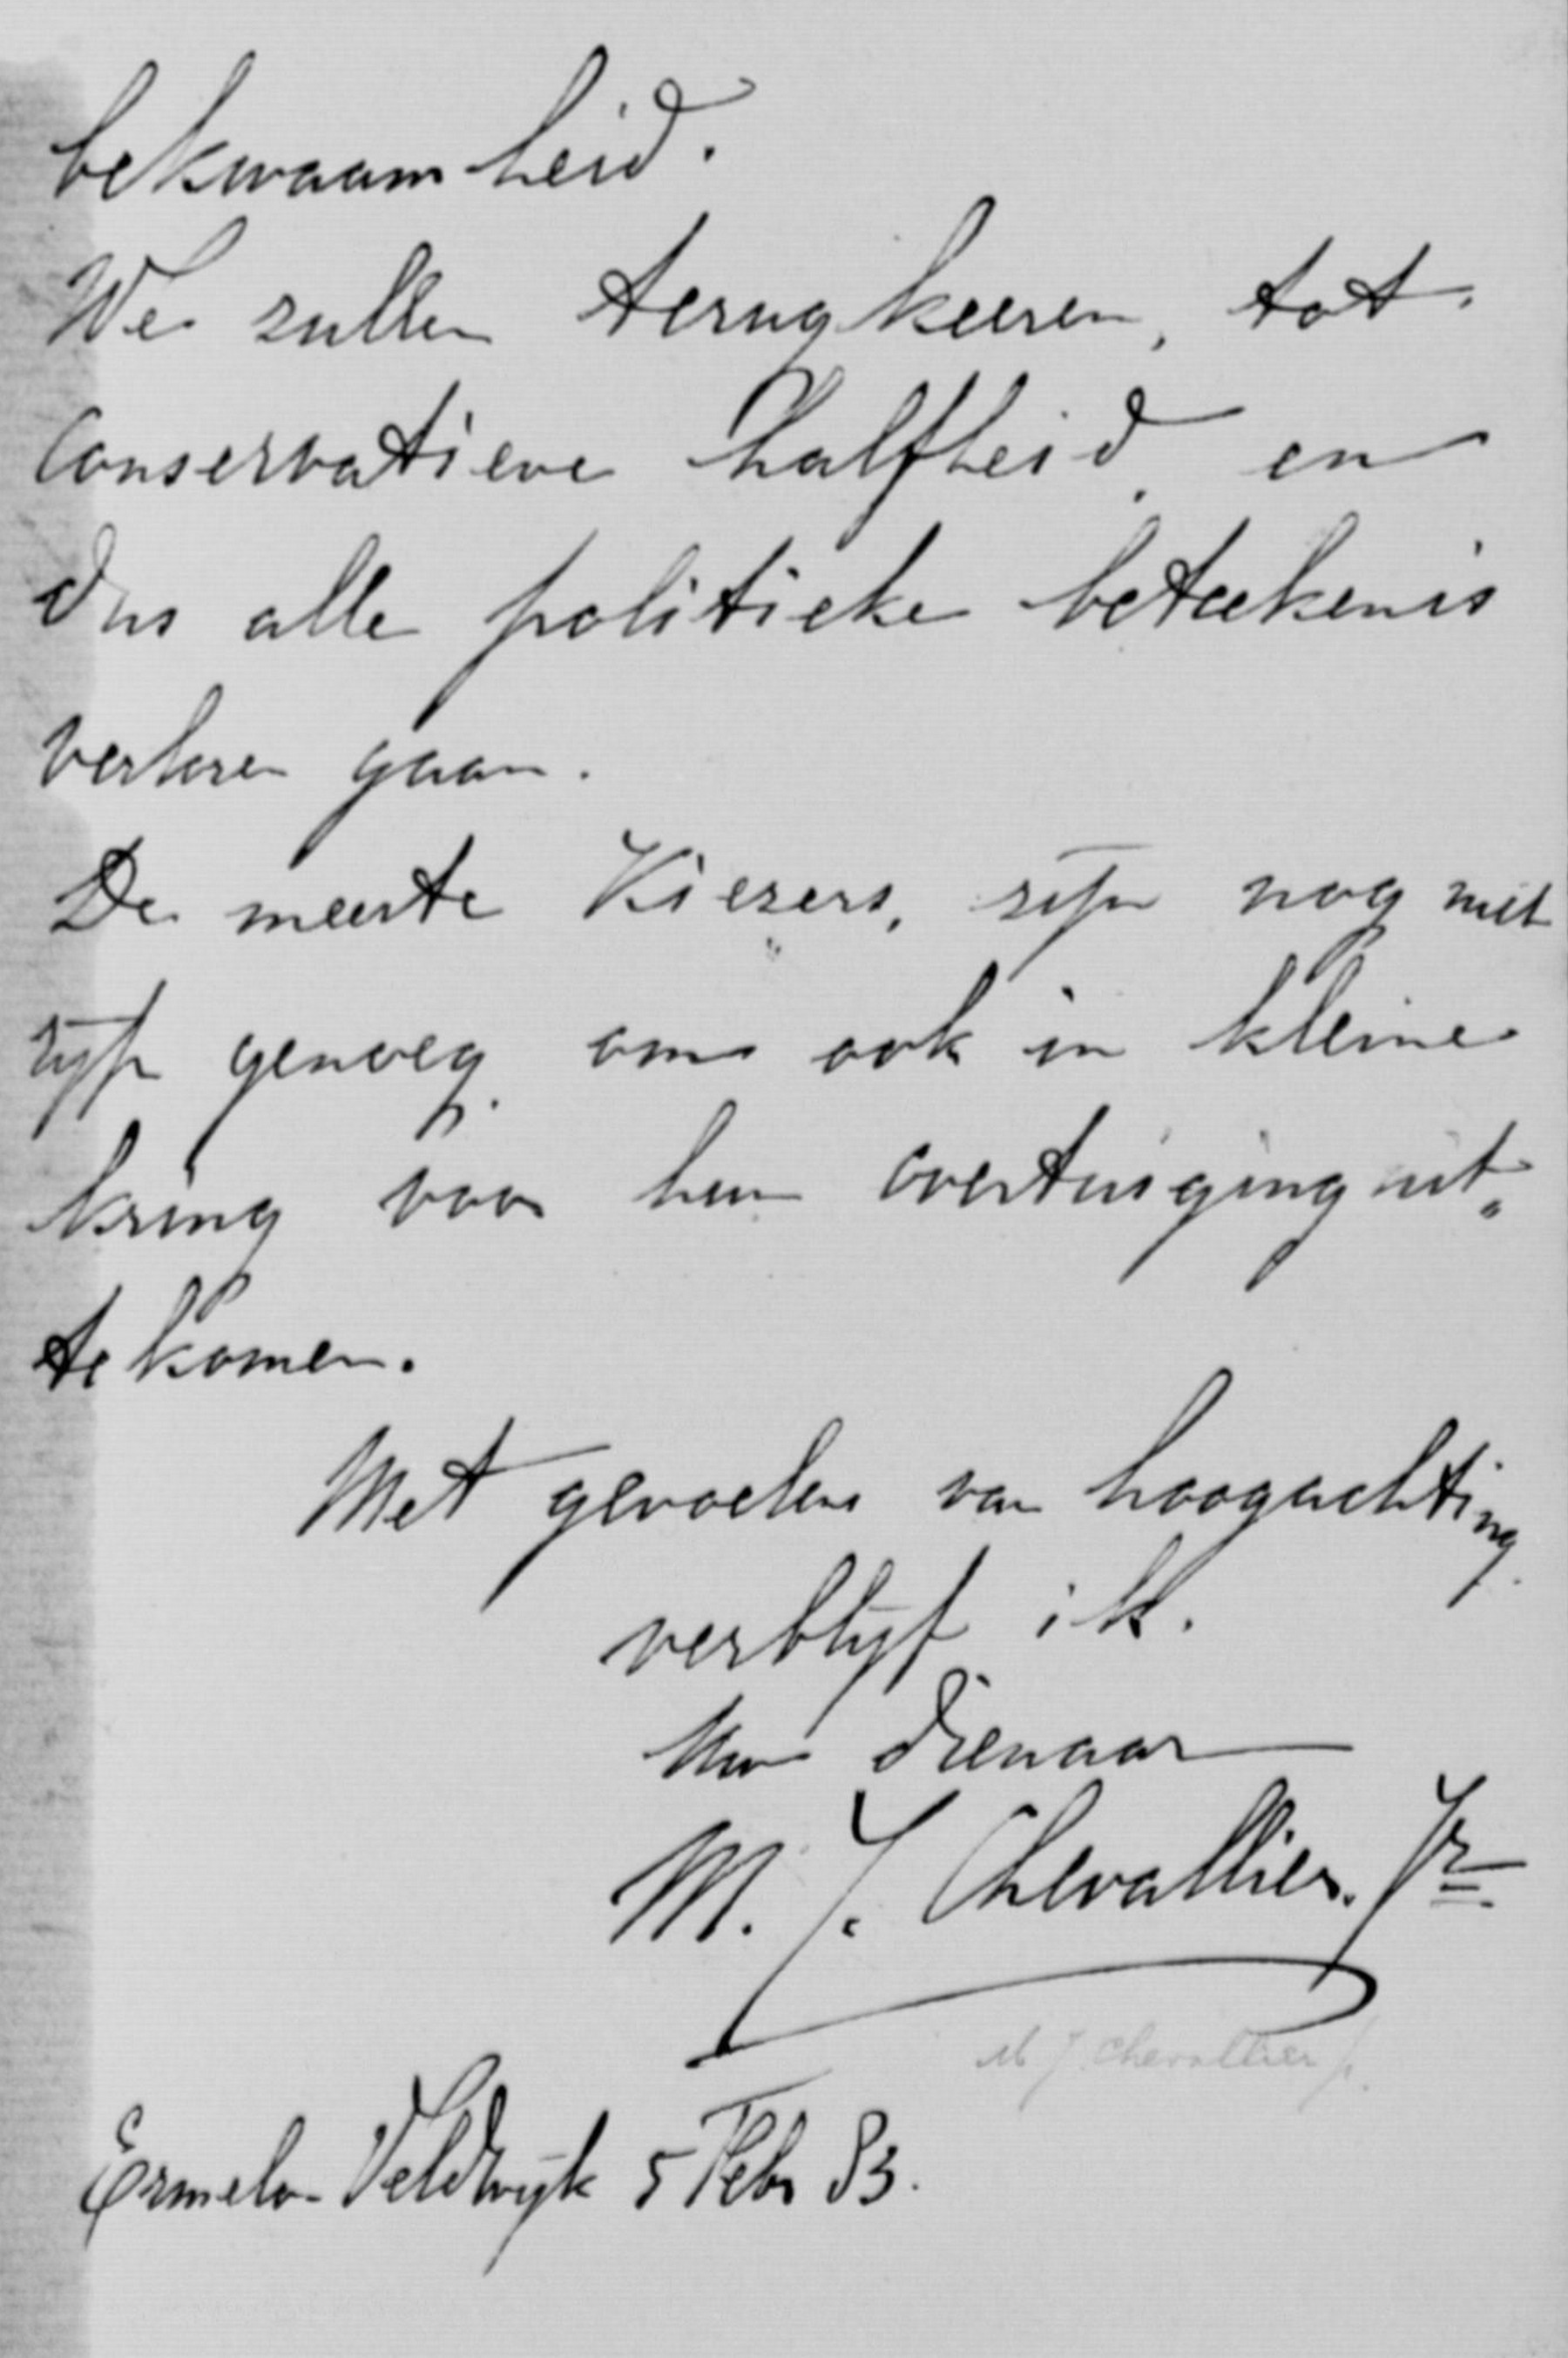 bekwaamheid.
We zullen terugkeeren, tot
Conservatieve halfheid, en
dus alle politieke beteekenis
verloren gaan.
De meeste Kiezers, zijn nog niet
rijp genoeg, om ook in kleine
kring voor hun overtuiging uit„
te komen.
Met gevoelens van hoogachting
verblijf ik.
Uw dienaar
M. J. Chevallier. Jr
M J. Chevallier Jr.
Ermelo-Veldwijk 5 Febr 83.